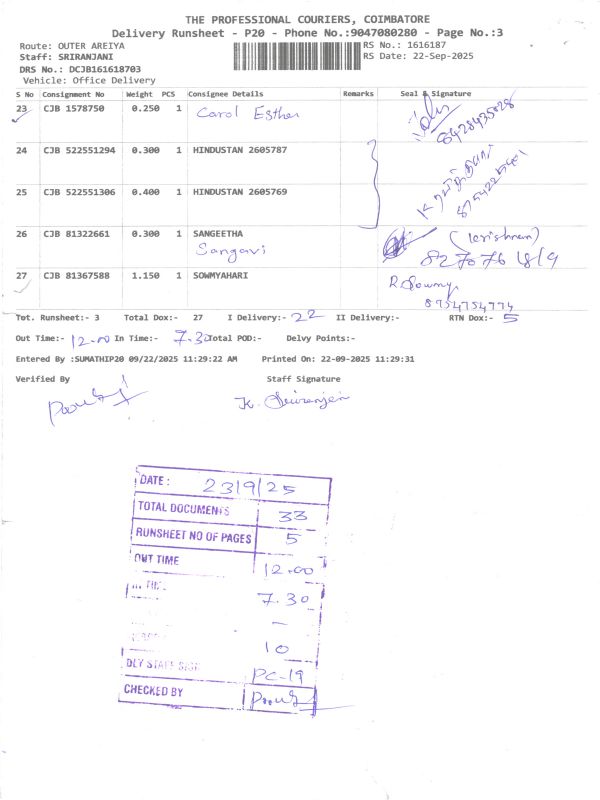 THE PROFESSIONAL COURIERS, COIMBATORE
Delivery Runsheet - P20 - Phone No.:9047080280 - Page No.:3
Route: OUTER AREIYA RS No.: 1616187
Staff: SRIRANJANI RS Date: 22-Sep-2025
DRS No.: DCJB161618703
Vehicle: Office Delivery
S No Consignment No Weight PCS Consignee Details Remarks Seal & Signature
23 CJB 1578750 0.250 1 Carol Esther
8428435828
24 CJB 522551294 0.300 1 HINDUSTAN 2605787
25 CJB 522551306 0.400 1 HINDUSTAN 2605769
26 CJB 81322661 0.300 1 SANGEETHA
Sangavi
27 CJB 81367588 1.150 1 SOWMYAHARI R.Sowmy
8754754774
Tot. Runsheet:- 3 Total Dox:- 27 I Delivery:- 22 II Delivery:- RTN Dox:- 5
Out Time:- 12.00 In Time:- 7.30 Total POD:- Delvy Points:-
Entered By :SUMATHIP20 09/22/2025 11:29:22 AM Printed On: 22-09-2025 11:29:31
Verified By Staff Signature
DATE : 23/9/25
TOTAL DOCUMENTS 33
RUNSHEET NO OF PAGES 5
OUT TIME 12.00
7.30
-
10
DLY STAFF SIGN PC-19
CHECKED BY